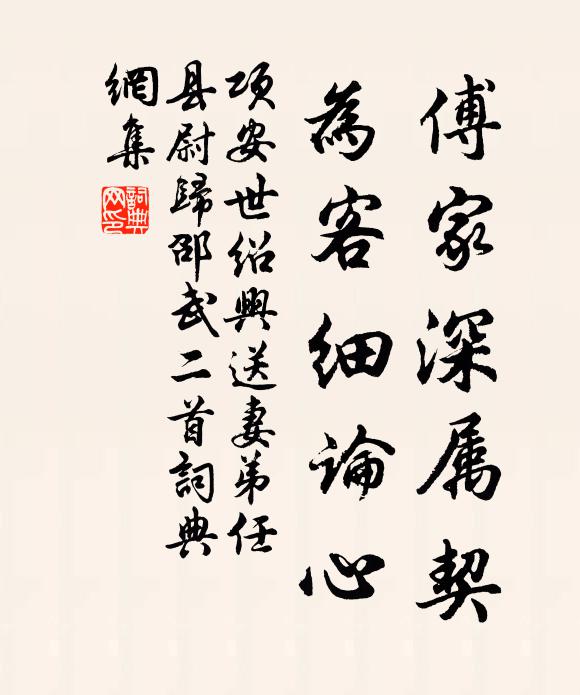 傅家深属契
為客细論心
项安世绍興送妻弟任
县尉歸邵武二首詞典
網集
詞典
网印